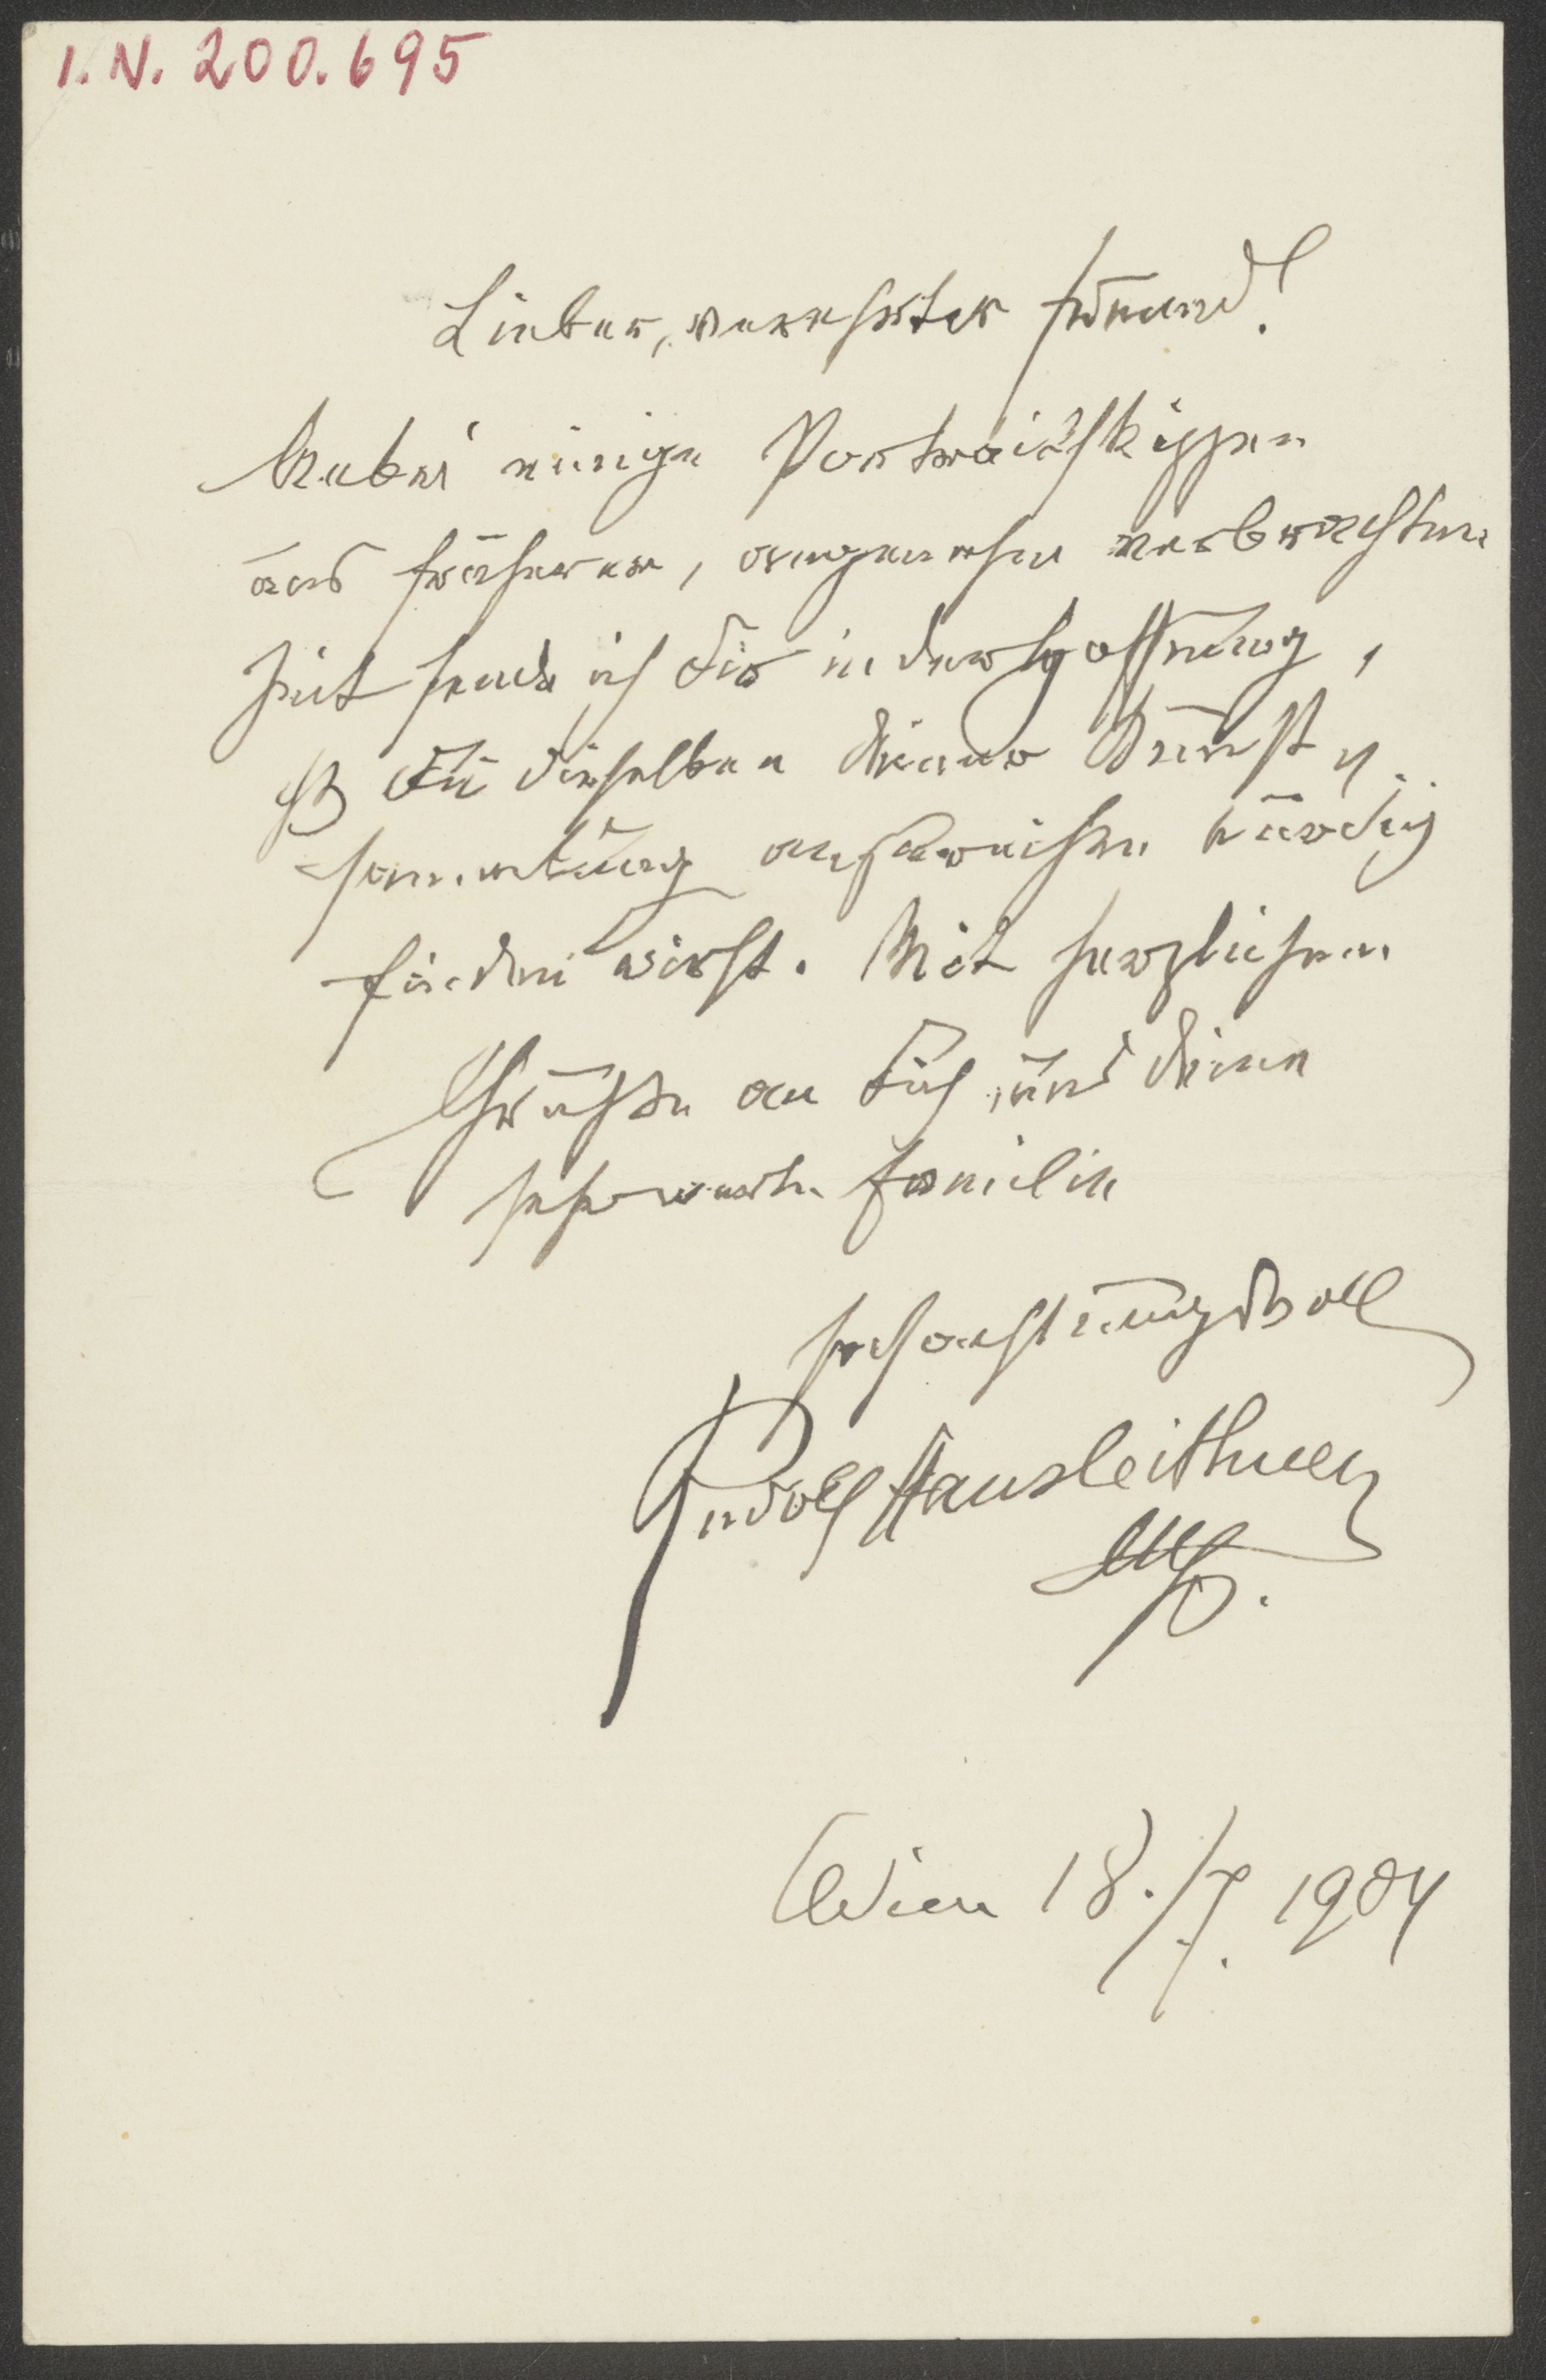 I.N. 200.695
Lieber, verehrter Freund!
Anbei einige Portraitskizzen
aus früherer, angenehm verbrachter
Zeit sende ich Dir in der Hoffnung,
daß Du dieselben Deiner Kunst
sammlung anzureihen würdig
finden wirst. Mit herzlichen
Grüßen an Dich und Deine
sehr werte Familie
hochachtungsvoll
Rudolf Hausleithner
Wien 18./7. 1904